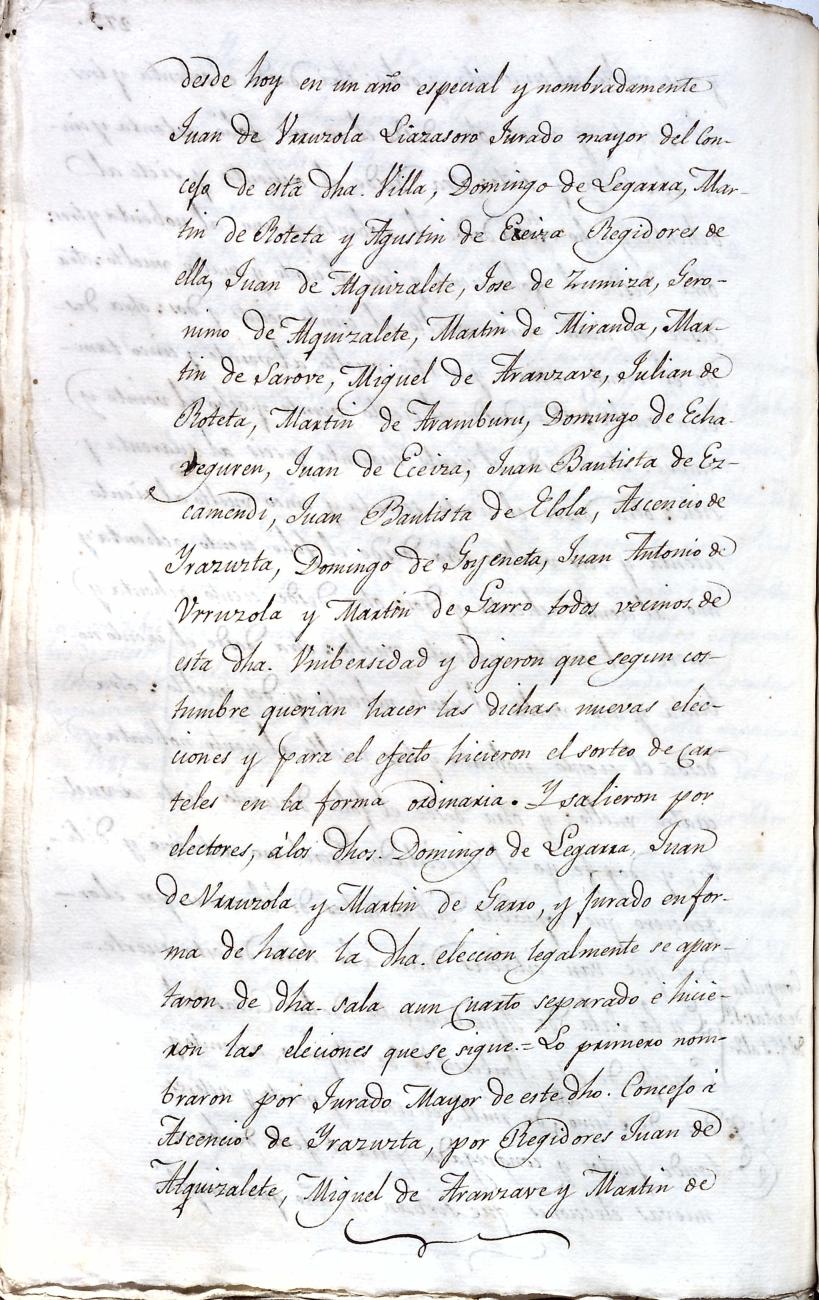 desde hoy en un año especial y nombradamente
Juan de Vrruzola Liazasoro Jurado mayor del Con-
cejo de esta dha. Villa, Domingo de Legarra, Mar-
tin de Roteta y Agustin de Eceiza Regidores de
ella, Juan de Alquizalete, Jose de Zumiza, Gero-
nimo de Alquizalete, Martin de Miranda, Mar-
tin de Sarove, Miguel de Aranzave, Julian de
Roteta, Martin de Aramburu, Domingo de Echa-
veguren, Juan de Eceiza, Juan Bautista de Ez-
camendi, Juan Bautista de Elola, Ascencio de
Yrazuzta, Domingo de Goyeneta, Juan Antonio de
Vrruzola y Martin de Garro todos vecinos de
esta dha. Vnibersidad y digeron que segun cos-
tumbre querian hacer las dichas nuevas elec-
ciones y para el efecto hicieron el sorteo de Car-
teles en la forma ordinaria. Y salieron por
electores, álos dhos. Domingo de Legarra, Juan
de Vrruzola y Martin de Garro, y jurado en for-
ma de hacer la dha. eleccion legalmente se apar-
taron de dha. sala aun Cuarto separado é hicie-
ron las eleciones que se sigue.= Lo primero nom-
braron por Jurado Mayor de este dho. Concejo á
Ascencio de Yrazuzta, por Regidores Juan de
Alquizalete, Miguel de Aranzave y Martin de